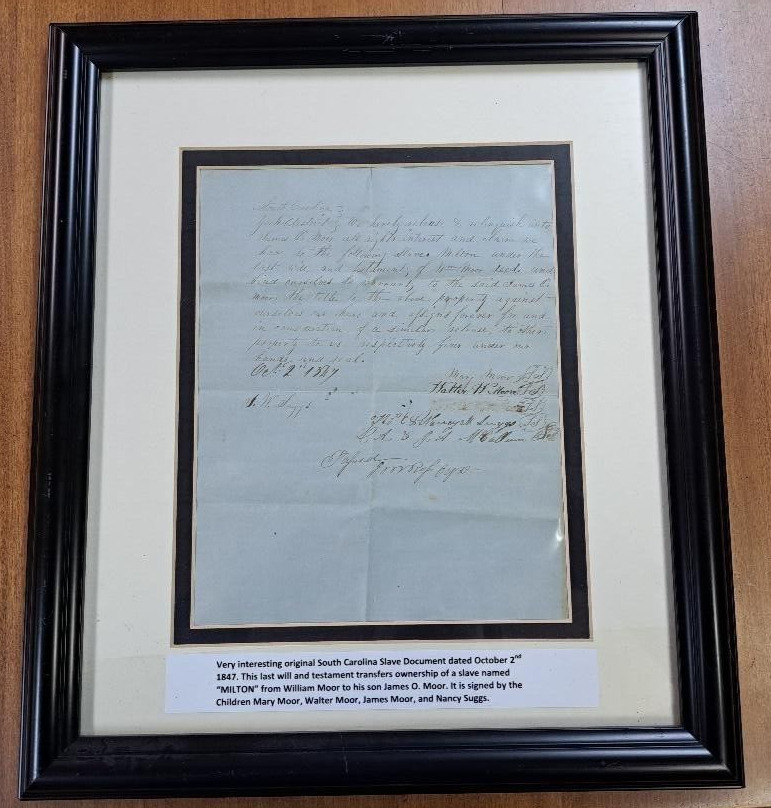 South Carolina
York District } We hereby release & relinquish unto
James O Moor all right interest and claim we
have in the following slave Milton under the
last will and testament of Wm Moor decd. and
bind ourselves to warranty to the said James O.
Moor the title to the above property against
ourselves our heirs and assigns forever for and
in consideration of a similar release, to other
property to us respectively given under our
hands and seal.
Oct. 2d 1847
Mary Moor
Walter H Moor
J. W. Suggs
& Nancy Suggs
Very interesting original South Carolina Slave Document dated October 2nd
1847. This last will and testament transfers ownership of a slave named
“MILTON” from William Moor to his son James O. Moor. It is signed by the
Children Mary Moor, Walter Moor, James Moor, and Nancy Suggs.